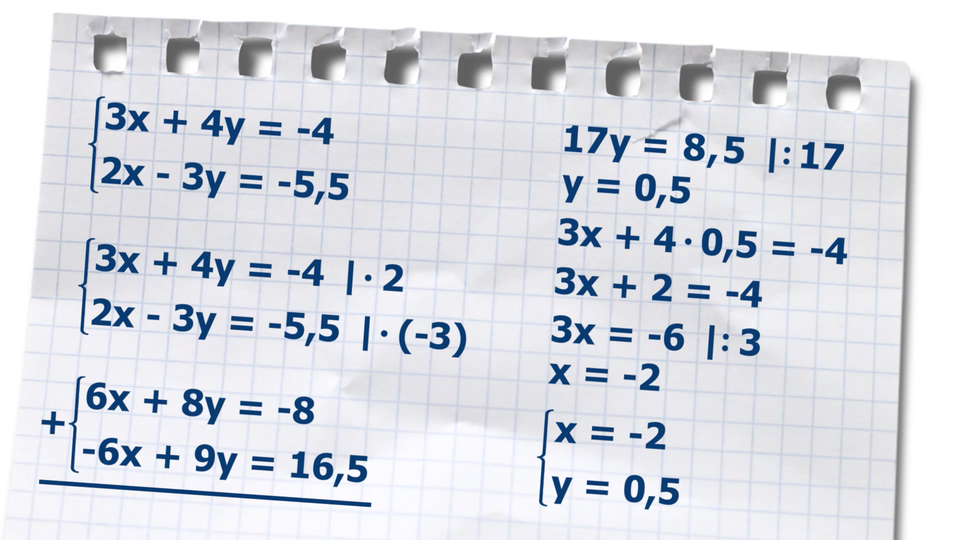 3x + 4y = -4
2x - 3y = -5,5
3x + 4y = -4 |· 2
2x - 3y = -5,5 |· (-3)
+
6x + 8y = -8
-6x + 9y = 16,5
17y = 8,5 |: 17
y = 0,5
3x + 4 · 0,5 = -4
3x + 2 = -4
3x = -6 |: 3
x = -2
x = -2
y = 0,5